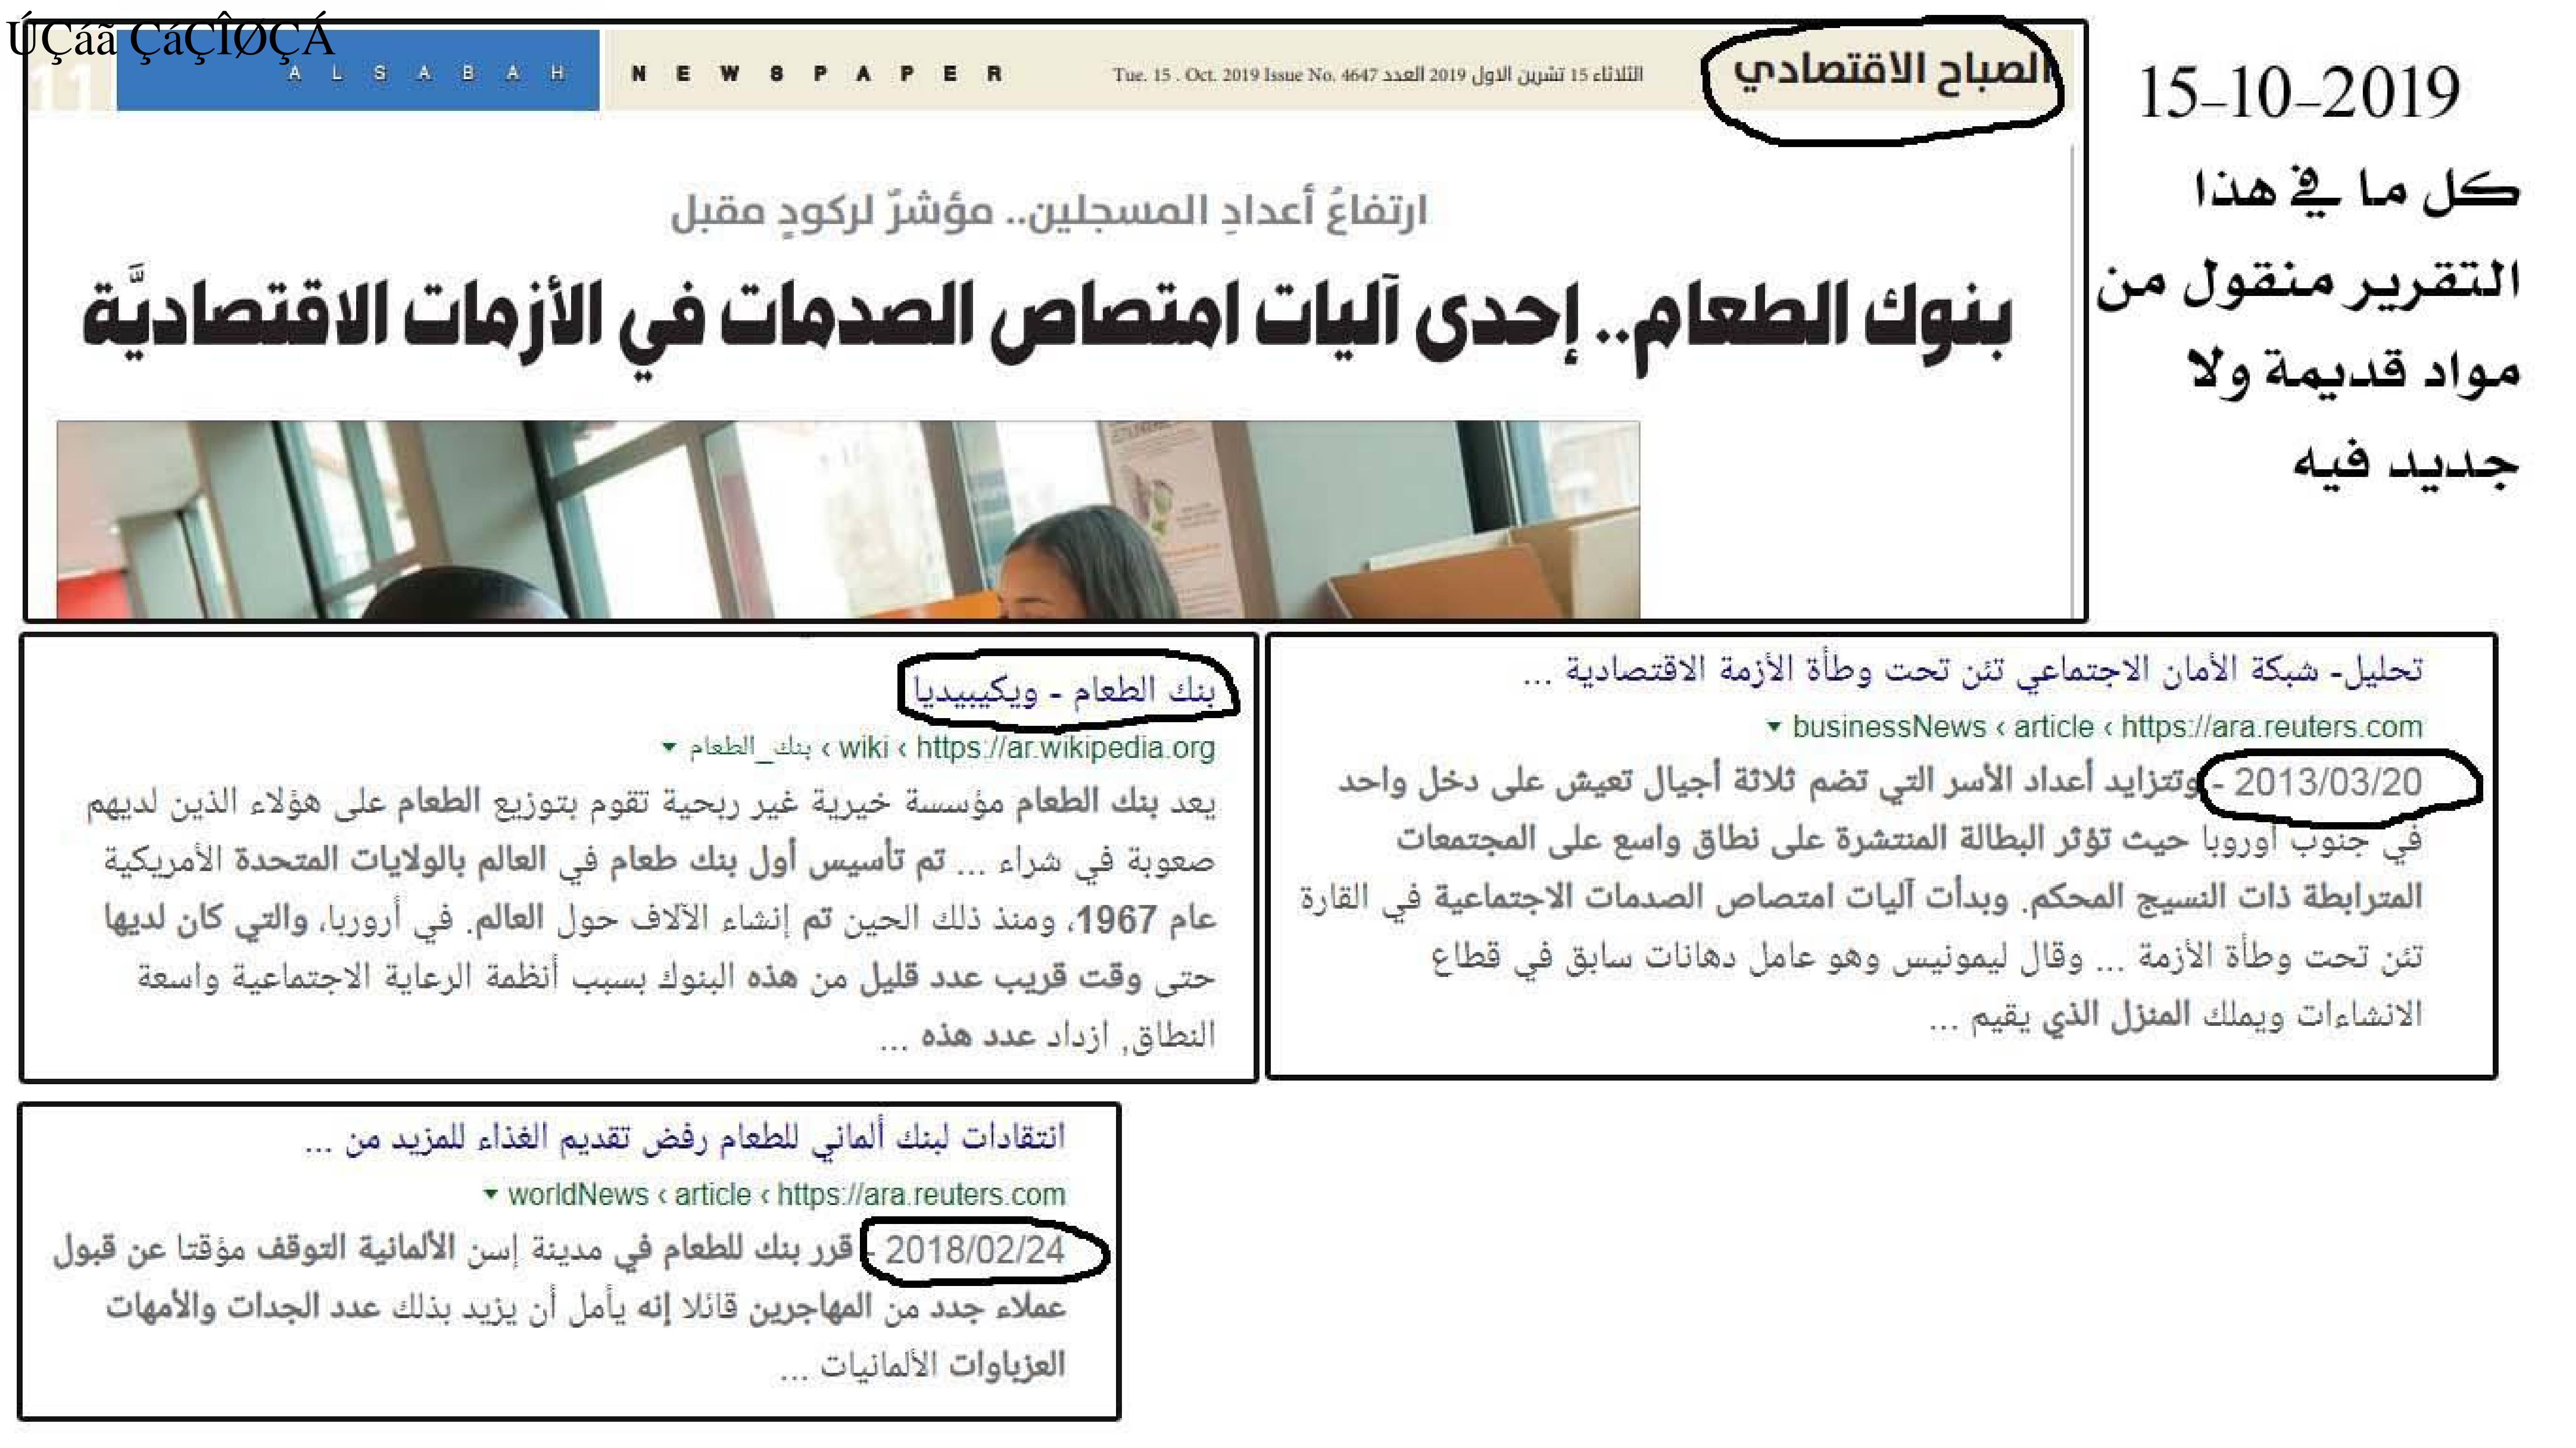 ÚÇáã ÇáÇÎØÇÁ
11
ALSABAH NEWSPAPER
Tue. 15 . Oct. 2019 Issue No. 4647 الثلاثاء 15 تشرين الاول 2019 العدد
الصباح الاقتصادي
ارتفاعُ أعدادِ المسجلين.. مؤشرٌ لركودٍ مقبل
بنوك الطعام.. إحدى آليات امتصاص الصدمات في الأزمات الاقتصاديَّة
15-10-2019
كل ما في هذا
التقرير منقول من
مواد قديمة ولا
جديد فيه
تحليل- شبكة الأمان الاجتماعي تئن تحت وطأة الأزمة الاقتصادية ...
https://ara.reuters.com › article › businessNews
2013/03/20 - وتتزايد أعداد الأسر التي تضم ثلاثة أجيال تعيش على دخل واحد
في جنوب أوروبا حيث تؤثر البطالة المنتشرة على نطاق واسع على المجتمعات
المترابطة ذات النسيج المحكم. وبدأت آليات امتصاص الصدمات الاجتماعية في القارة
تئن تحت وطأة الأزمة ... وقال ليمونيس وهو عامل دهانات سابق في قطاع
الانشاءات ويملك المنزل الذي يقيم ...
بنك الطعام - ويكيبيديا
https://ar.wikipedia.org › wiki › بنك_الطعام
يعد بنك الطعام مؤسسة خيرية غير ربحية تقوم بتوزيع الطعام على هؤلاء الذين لديهم
صعوبة في شراء ... تم تأسيس أول بنك طعام في العالم بالولايات المتحدة الأمريكية
عام 1967، ومنذ ذلك الحين تم إنشاء الآلاف حول العالم. في أروربا، والتي كان لديها
حتى وقت قريب عدد قليل من هذه البنوك بسبب أنظمة الرعاية الاجتماعية واسعة
النطاق, ازداد عدد هذه ...
انتقادات لبنك ألماني للطعام رفض تقديم الغذاء للمزيد من ...
https://ara.reuters.com › article › worldNews
2018/02/24 - قرر بنك للطعام في مدينة إسن الألمانية التوقف مؤقتا عن قبول
عملاء جدد من المهاجرين قائلا إنه يأمل أن يزيد بذلك عدد الجدات والأمهات
العزباوات الألمانيات ...